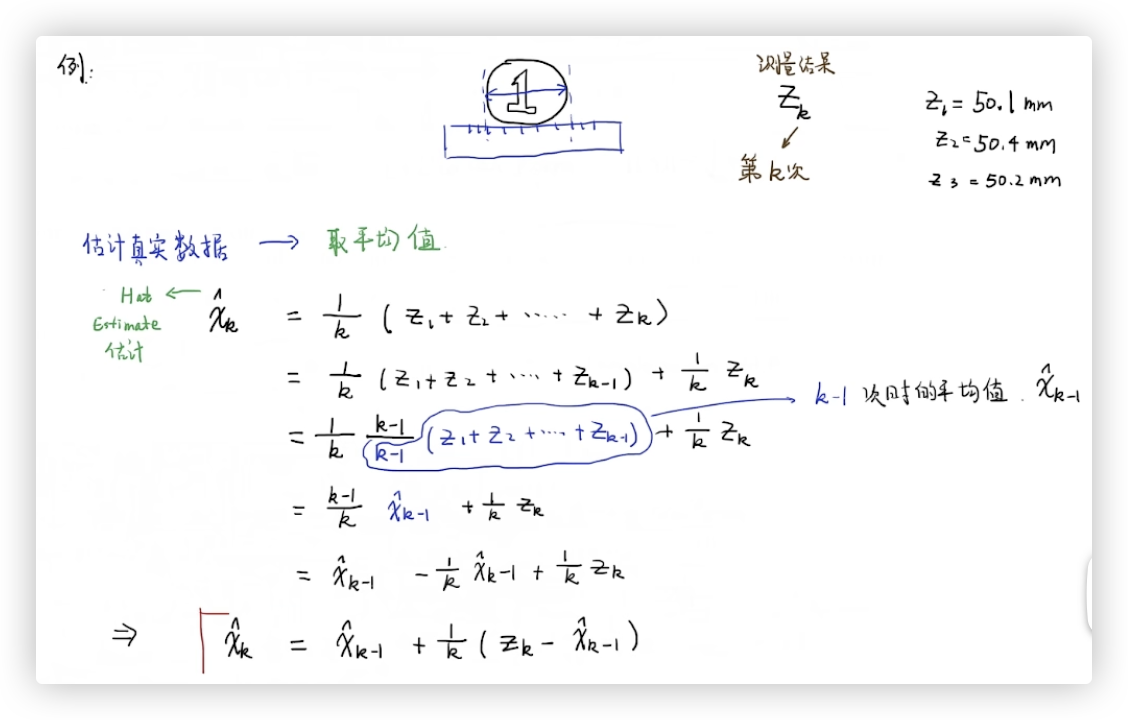 例:
1
测量结果
Z_k
第k次
Z_1 = 50.1 mm
Z_2 = 50.4 mm
Z_3 = 50.2 mm
估计真实数据 → 取平均值.
Hat ← x̂_k = 1/k ( Z_1 + Z_2 + ...... + Z_k )
Estimate
估计
= 1/k ( Z_1 + Z_2 + ... + Z_{k-1} ) + 1/k Z_k
= 1/k (k-1)/(k-1) ( Z_1 + Z_2 + ... + Z_{k-1} ) + 1/k Z_k → k-1 次时的平均值. x̂_{k-1}
= (k-1)/k x̂_{k-1} + 1/k Z_k
= x̂_{k-1} - 1/k x̂_{k-1} + 1/k Z_k
⇒ x̂_k = x̂_{k-1} + 1/k ( Z_k - x̂_{k-1} )